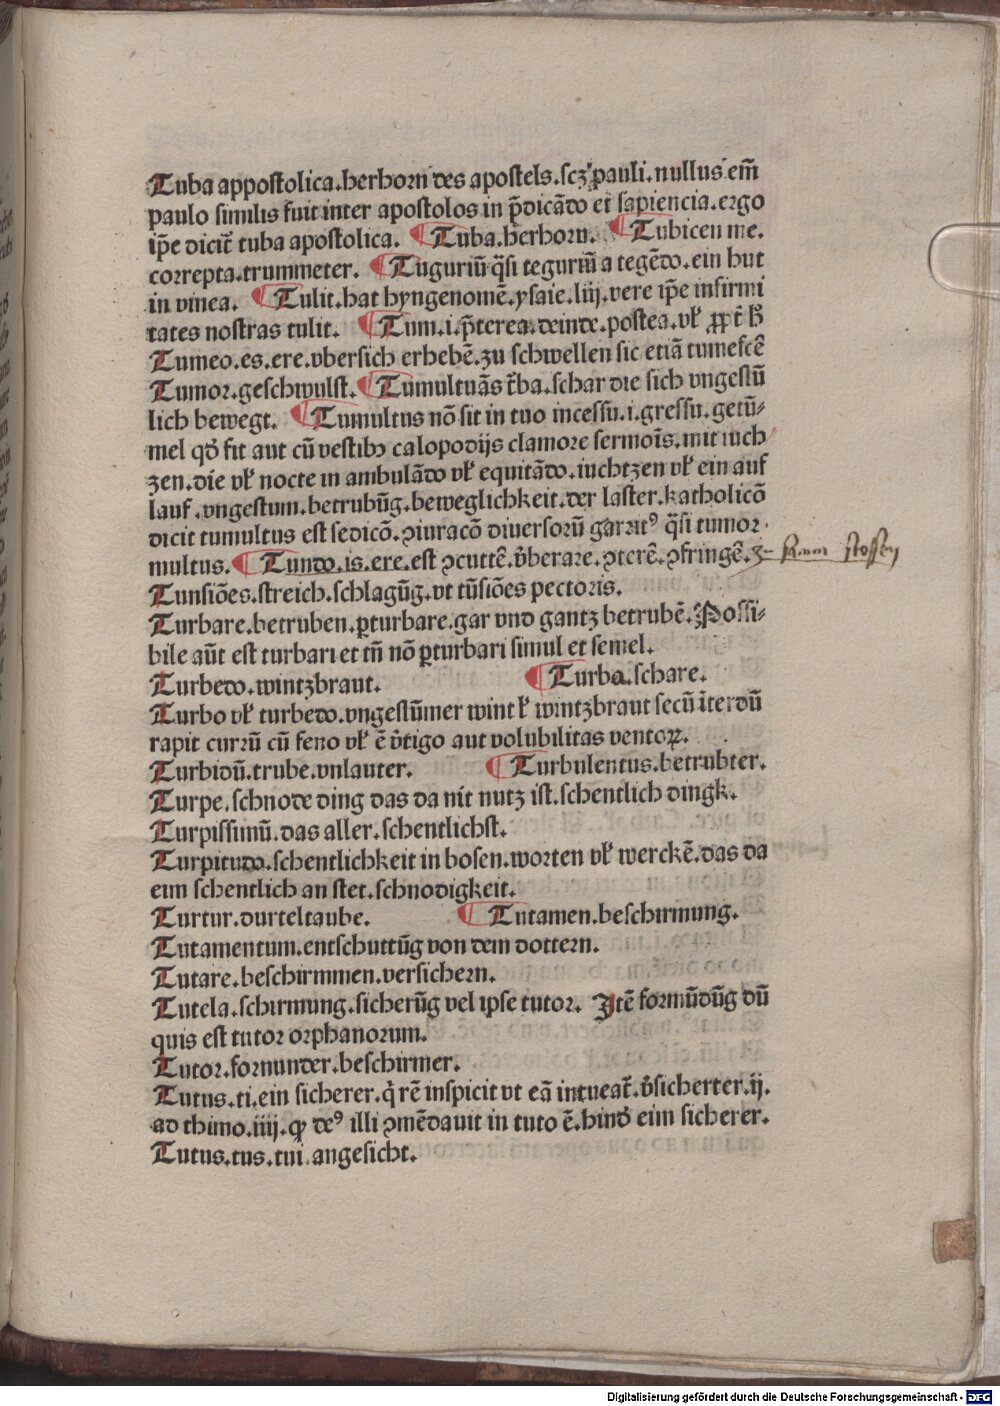 Tuba appostolica.herhorn des apostels.scz pauli.nullus em̄
paulo similis fuit inter apostolos in p̄dicādo et sapiencia.ergo
ip̄e dicit̄ tuba apostolica. ¶ Tuba.herhorn. ¶ Tubicen me.
correpta.trummeter. ¶ Tuguriū q̄si teguriū a tegēdo.ein hut
in vinea. ¶ Tulit.hat hyngenomē.ysaie.liij.vere ip̄e infirmi
tates nostras tulit. ¶ Tum.i.p̄terea.deinde.postea.vł
Tumeo.es.ere.vbersich erhebē.zu schwellen sic etiā tumescē
Tumor.geschwulst. ¶ Tumultuās t̄ba.schar die sich vngestū
lich bewegt. ¶ Tumultus nō sit in tuo incessu.i.gressu.getū⸗
mel qd̄ fit aut cū vestibꝫ calopodijs clamore sermoīs.mit iuch
zen.die vł nocte in ambulādo vł equitādo.iuchtzen vł ein auf
lauf.vngestum.betrubūg.beweglichkeit.der laster.katholicō
dicit tumultus est sedicō.ꝯiuracō diuersorū garritꝰ q̄si tumor
multus. ¶ Tundo.is.ere.est ꝯcuttē.v̄berare.ꝯterē.ꝯfringē.zu stossen
Tunsiōes.streich.schlagūg.vt tūsiōes pectoris.
Turbare.betruben.ꝑturbare.gar vnd gantz betrubē.Possi⸗
bile aūt est turbari et tn̄ nō ꝑturbari simul et semel.
Turbedo.wintzbraut. ¶ Turba.schare.
Turbo vł turbedo.vngestūmer wint ł wintzbraut secū īterdū
rapit currū cū feno vł ē v̄tigo aut volubilitas ventoꝝ.
Turbidū.trube.vnlauter. ¶ Turbulentus.betrubter.
Turpe.schnode ding das da nit nutz ist.schentlich dingk.
Turpissimū.das aller.schentlichst.
Turpitudo.schentlichkeit in bosen.worten vł werckē.das da
eim schentlich an stet.schnodigkeit.
Turtur.durteltaube. ¶ Tutamen.beschirmung.
Tutamentum.entschuttūg von dem dottern.
Tutare.beschirmmen.versichern.
Tutela.schirmung.sicherūg vel ipse tutor. Itē formūdūg dū
quis est tutor orphanorum.
Tutor.formunder.beschirmer.
Tutus.ti.ein sicherer.q̇ rē inspicit vt eā intueat̄.v̄sicherter.ij.
ad thimo.iiij.ꝙ deꝰ illi ꝯmēdauit in tuto ē.hind̄ eim sicherer.
Tutus.tus.tui.angesicht.
Digitalisierung gefördert durch die Deutsche Forschungsgemeinschaft - DFG